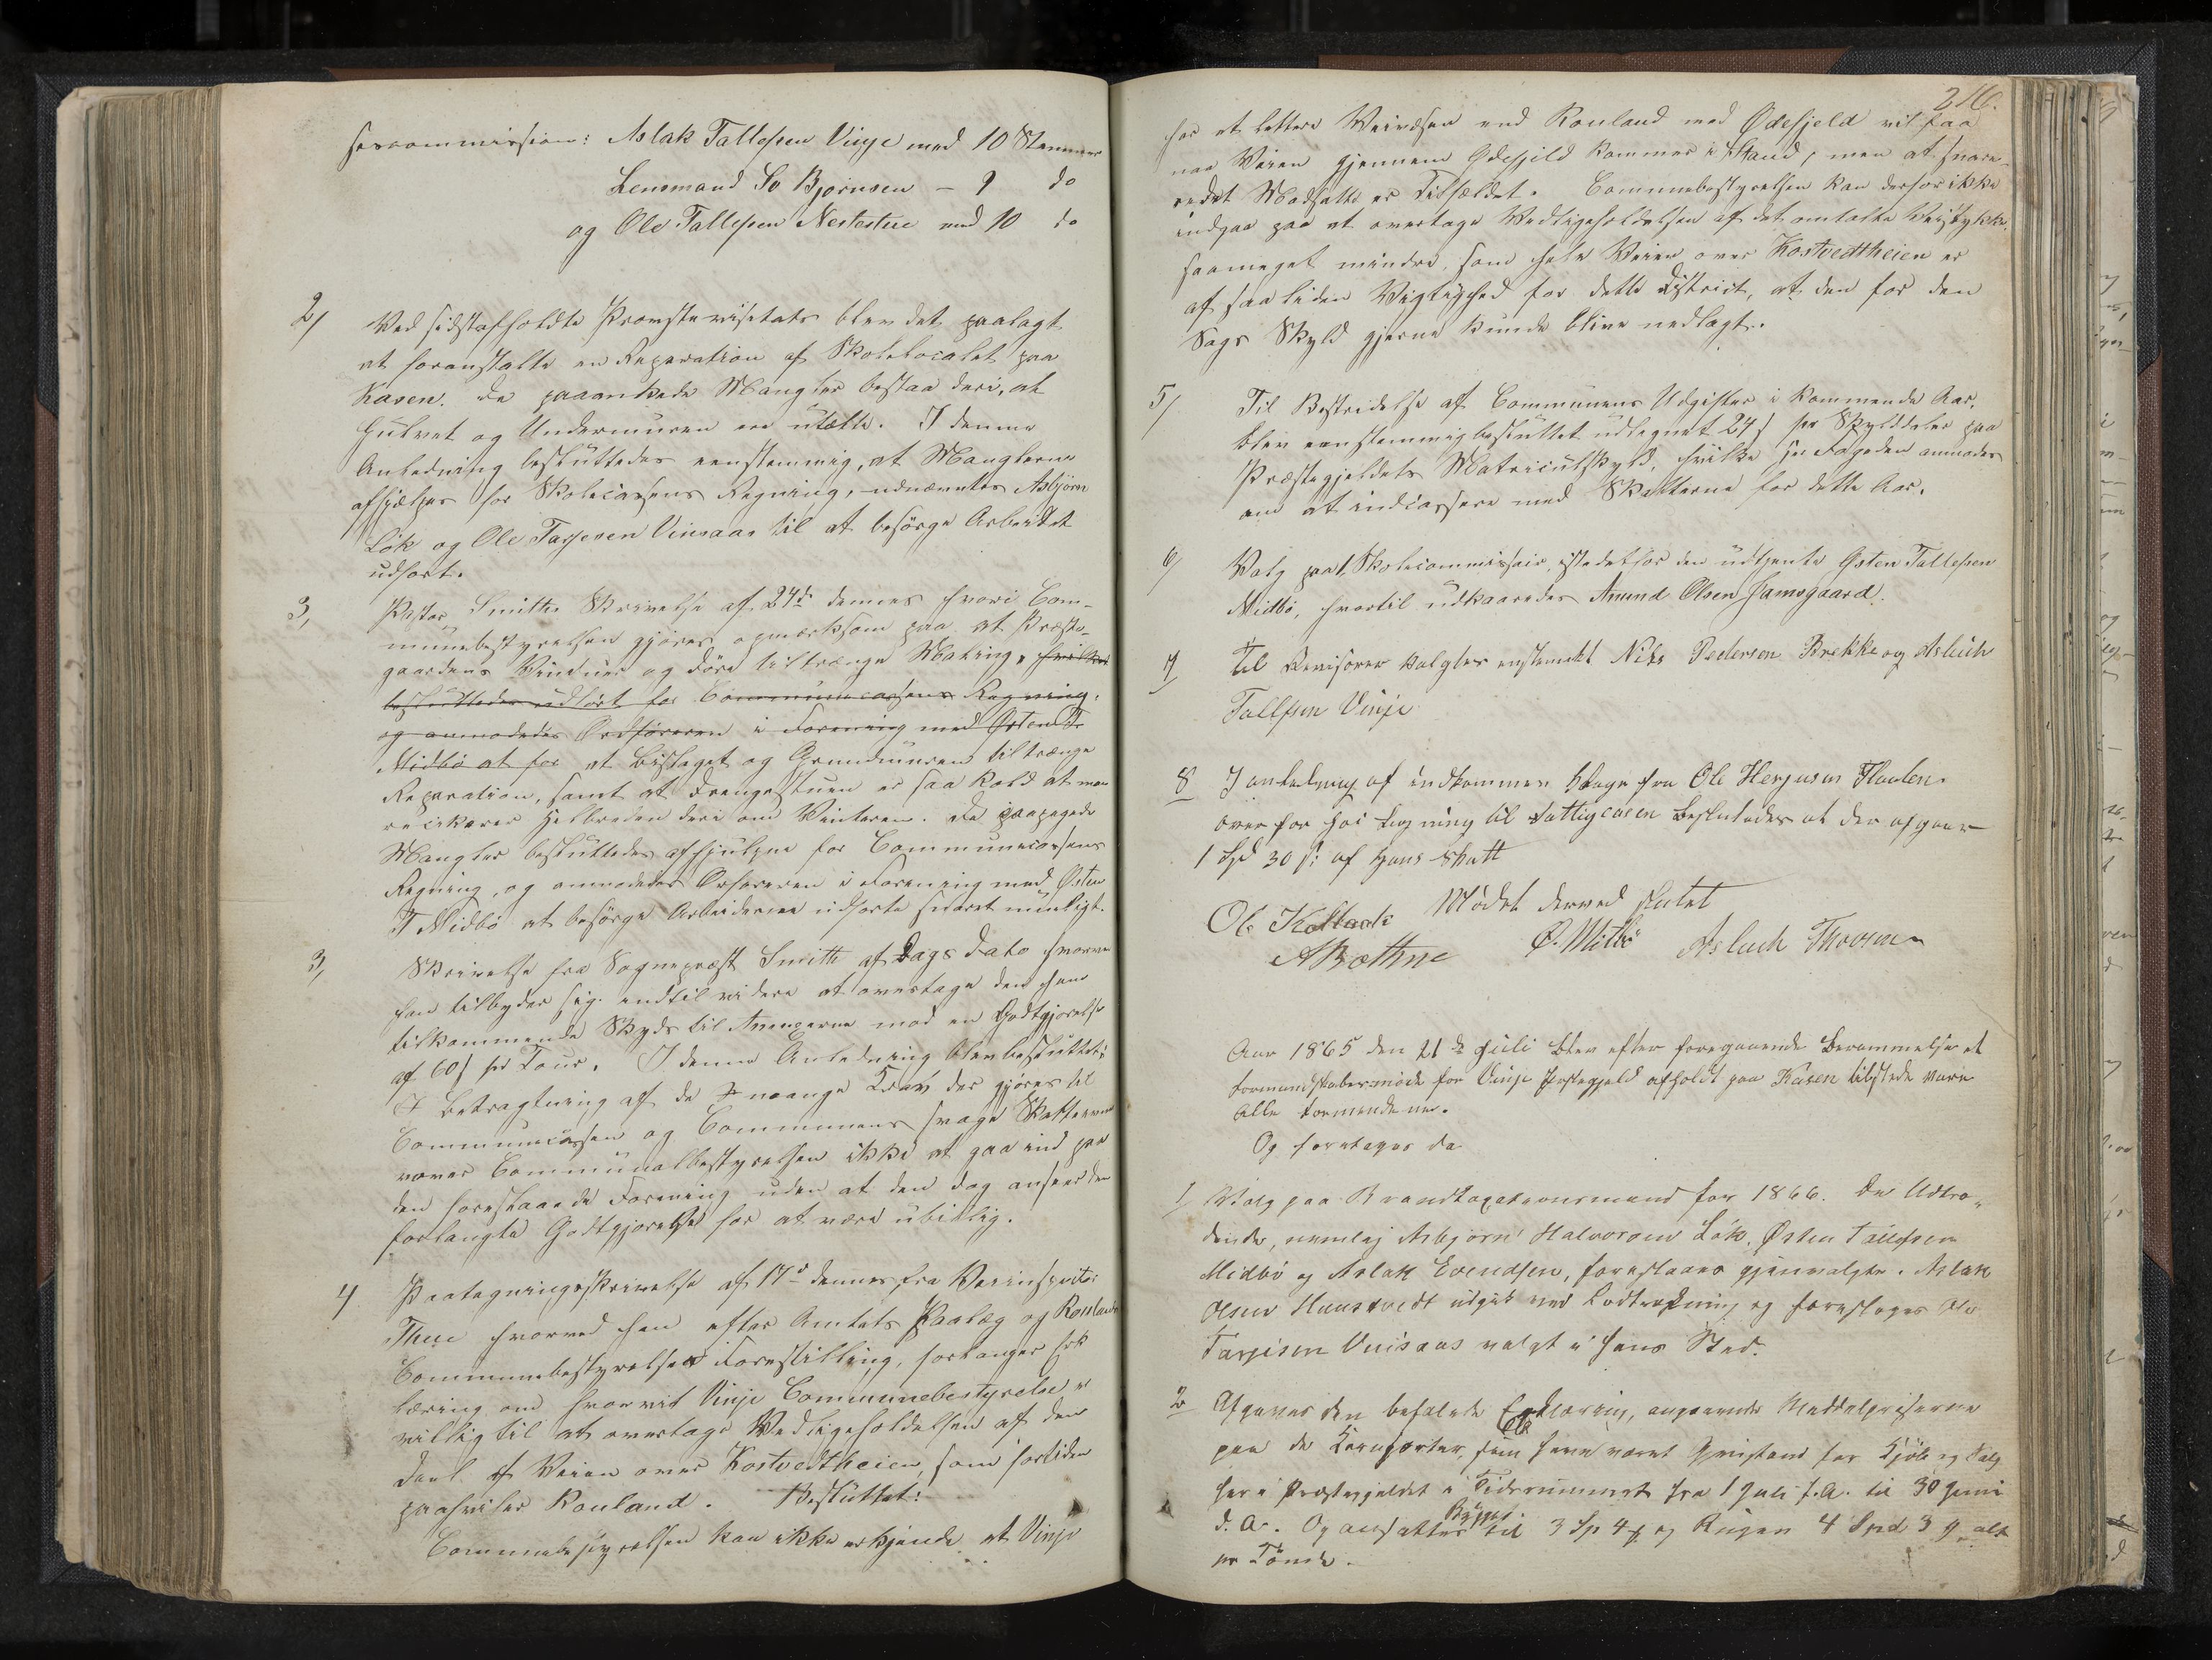 sescommission: Aslak Tallefsen Vinje med 10 Stemmer
Lensmand So Bjørnsen – 9 do
og Ole Tallefsen Nestestue med 10 do
2/ Ved sidstafholdte Provstevisitats blev det paalagt
at foranstalte en Reparation af Skolelocalet paa
Kasen. De paaankede Mangler bestaa deri, at
Gulvet og Undermuren ere utætte. I denne
Anledning besluttedes eenstemmig, at Manglerne
afhjælpes for Skolecassens Regning, udnævntes Asbjørn
Løk og Ole Tarjesen Vinsaas til at besørge Arbeidet
udført.
3, Pastor Smiths Skrivelse af 24de dennes hvori Com-
munebestyrelsen gjøres opmærksom paa at Præste-
gaardens Vinduer og Døre tiltrænge Maling, hvilket
besluttedes udført for Communecassens Regning,
og anmodedes Ordføreren i Forening med Østen T.
Midbø at for at Bislaget og Grundmuren tiltrænge
Reparation, samt at Drengestuen er saa kold at man
resikerer Helbreden deri om Vinteren. De paapegede
Mangler besluttedes afhjulpne for Communecassens
Regning, og anmodedes Orføreren i Forening med Østen
T Midbø at besørge Arbeiderne udførte snarest muligt.
3, Skrivelse fra Sognepræst Smith af Dags Dato hvorved
han tilbyder sig indtil videre at overtage den ham
tilkommende Skyds til Annexerne mod en Godtgjørelse
af 60 s per Tour. I denne Anledning blev besluttet:
I Betragtning af de mange Krav der gjøres til
Communecassen og Communens svage Skatteevne
vover Communalbestyrelsen ikke at gaa ind paa
den foreslaaede Forening uden at den dog anseer den
forlangte Godtgjørelse for at være ubillig.
4 Paategningsskrivelse af 17de dennes fra Veiinspecteur
hvorved han efter Amtets Paalæg og Roulands
Communebestyrelses Forestilling, forlanger Erk
læring om hvorvidt Vinje Communebestyrelse er
villig til at overtage Vedligeholdelsen af den
Deel af Veien over Kostvedtheien, som fortiden
paahviler Rouland. Besluttet:
Communebestyrelsen kan ikke erkjende at Vinje
216.
har et lettere Veivæsen end Rouland med Ødefjeld vil faa
naar Veien gjennem Ødefjeld kommer i Stand, men at snare-
redet Modsatte er Tilfældet. Communebestyrelsen kan derfor ikke
indgaa paa at overtage Vedligeholdelsen af det omtalte Veistykke,
saameget mindre, som hele Veien over Kostvedtheien er
af saa liden Vigtighed for dette District, at den for den
Sags Skyld gjerne kunde blive nedlagt.
5/ Til Bestridelse af Communens Udgifter i kommende Aar,
blev eenstemmig besluttet udlignet 24 s per Skylddaler paa
Præstegjeldets Matriculskyld, hvilke Hr Fogden anmodes
om at indcassere med Skatterne for dette Aar.
6/ Valg paa 1 Skolecommissair istedetfor den udtjente Østen Tallefsen
Midbø, hvortil udkaaredes Amund Olsen Hamregaard.
7/ Til Revisorer valgtes enstemt Nils Pedersen Brekke og Asluch
Tallefsen Vinje
8 I anledning af indkommen klage fra Ole Herjusen Flaaten
over for høi Ligning til Fattigcasen besluttedes at der afgaar
1 Spd 30 s: af Hans Skatt
Mødet derved slutet
Ole
A Bøthne Ø. Midbø Asluch Thoresen
Aar 1865 den 21de Juli blev efter foregaaende Berammelse et
Formandskabsmøde for Vinje Prestegjeld afholdt paa Kasen tilstede vare
Alle Formendene.
Og foretoges da
1/ Valg paa Brandtaxationsmænd for 1866. De Udtræ-
dende, nemlig Asbjørn Halvorsen Løk, Østen Tallefsen
Midbø og Aslak Evendsen, foreslaaes gjenvalgte. Aslak
Olsen Haustvedt udgik ved Lodtrækning og foresloges Ole
Tarjesen Vinsaas valgt i hans Sted.
2 Afgaves den befalede Erklæring, angaaende Middelpriserne
paa de Kornsorter, som have været Gjenstand for Kjøb og Salg
her i Præstegjeldet i Tidsrummet fra 1 Juli f.A. til 30 Juni
d.A. Og ansattes Bygget til 3 Sp 4 og Rugen 4 Spd 3 alt
pr Tønde.